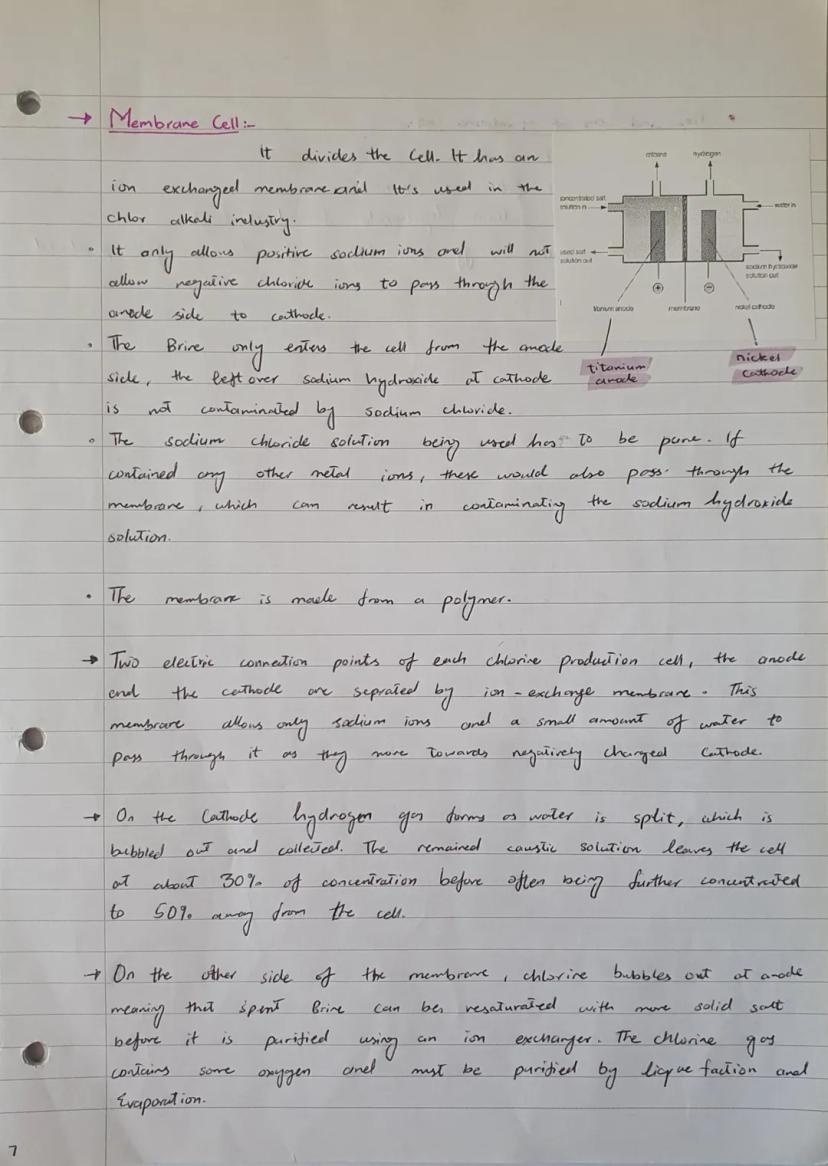 → Membrane Cell:-
It divides the cell. It has an
ion exchanged membrane and It's used in the
chlor alkali industry.
• It only allows positive sodium ions and will not
allow negative chloride ions to pass through the
anode side to cathode.
• The Brine only enters the cell from the anode
side, the left over sodium hydroxide at cathode
is not contaminated by sodium chloride.
• The sodium chloride solution being used has to be pure. If
contained any other metal ions, these would also pass through the
membrane, which can result in contaminating the sodium hydroxide
solution.
• The membrane is made from a polymer.
→ Two electric connection points of each chlorine production cell, the anode
and the cathode are seprated by ion-exchange membrane. This
membrane allows only sodium ions and a small amount of water to
pass through it as they move towards negatively charged Cathode.
→ On the Cathode hydrogen gas forms as water is split, which is
bubbled out and collected. The remained caustic solution leaves the cell
at about 30% of concentration before often being further concentrated
to 50% away from the cell.
→ On the other side of the membrane, chlorine bubbles out at anode
meaning that spent Brine can be resaturated with more solid salt
before it is purified using an ion exchanger. The chlorine gas
contains some oxygen and must be purified by liquefaction and
Evaporation.
chlorine hydrogen
concentrated salt
solution in
water in
used salt
solution out
sodium hydroxide
solution out
+ −
titanium anode membrane nickel cathode
titanium
anode
nickel
cathode
7